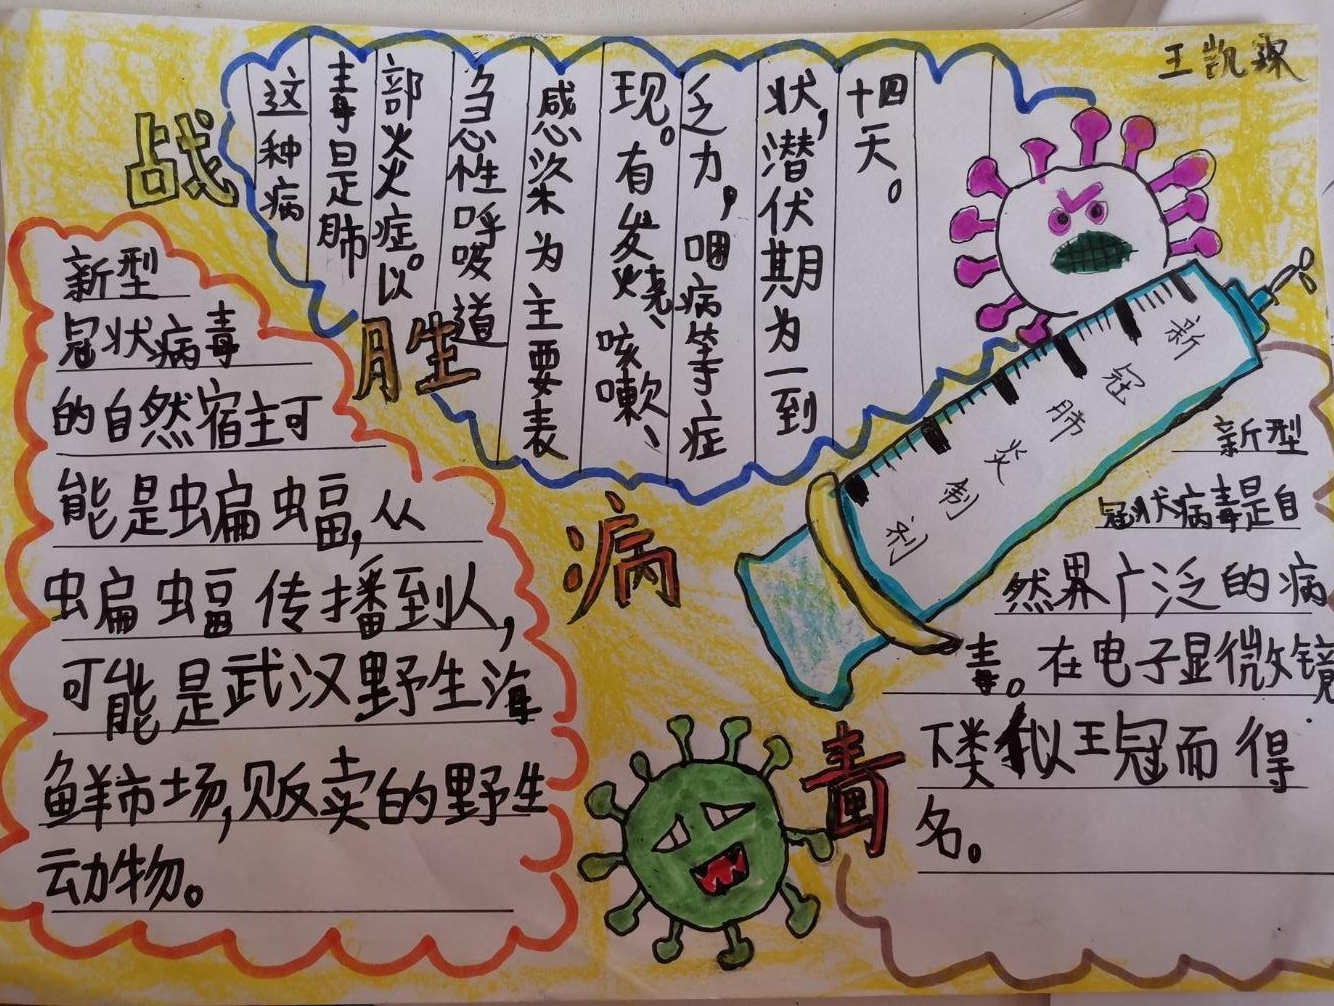 王凯琛
战胜病毒
这种病
毒是肺
部炎症。以
急性呼吸道
感染为主要表
现。有发烧、咳嗽、
乏力,咽病等症
状,潜伏期为一到
十四天。
新型
冠状病毒
的自然宿主可
能是蝙蝠,从
蝙蝠传播到人,
可能是武汉野生海
鲜市场,贩卖的野生
动物。
新冠肺炎制剂
新型
冠状病毒是自
然界广泛的病
毒。在电子显微镜
下类似王冠而得
名。